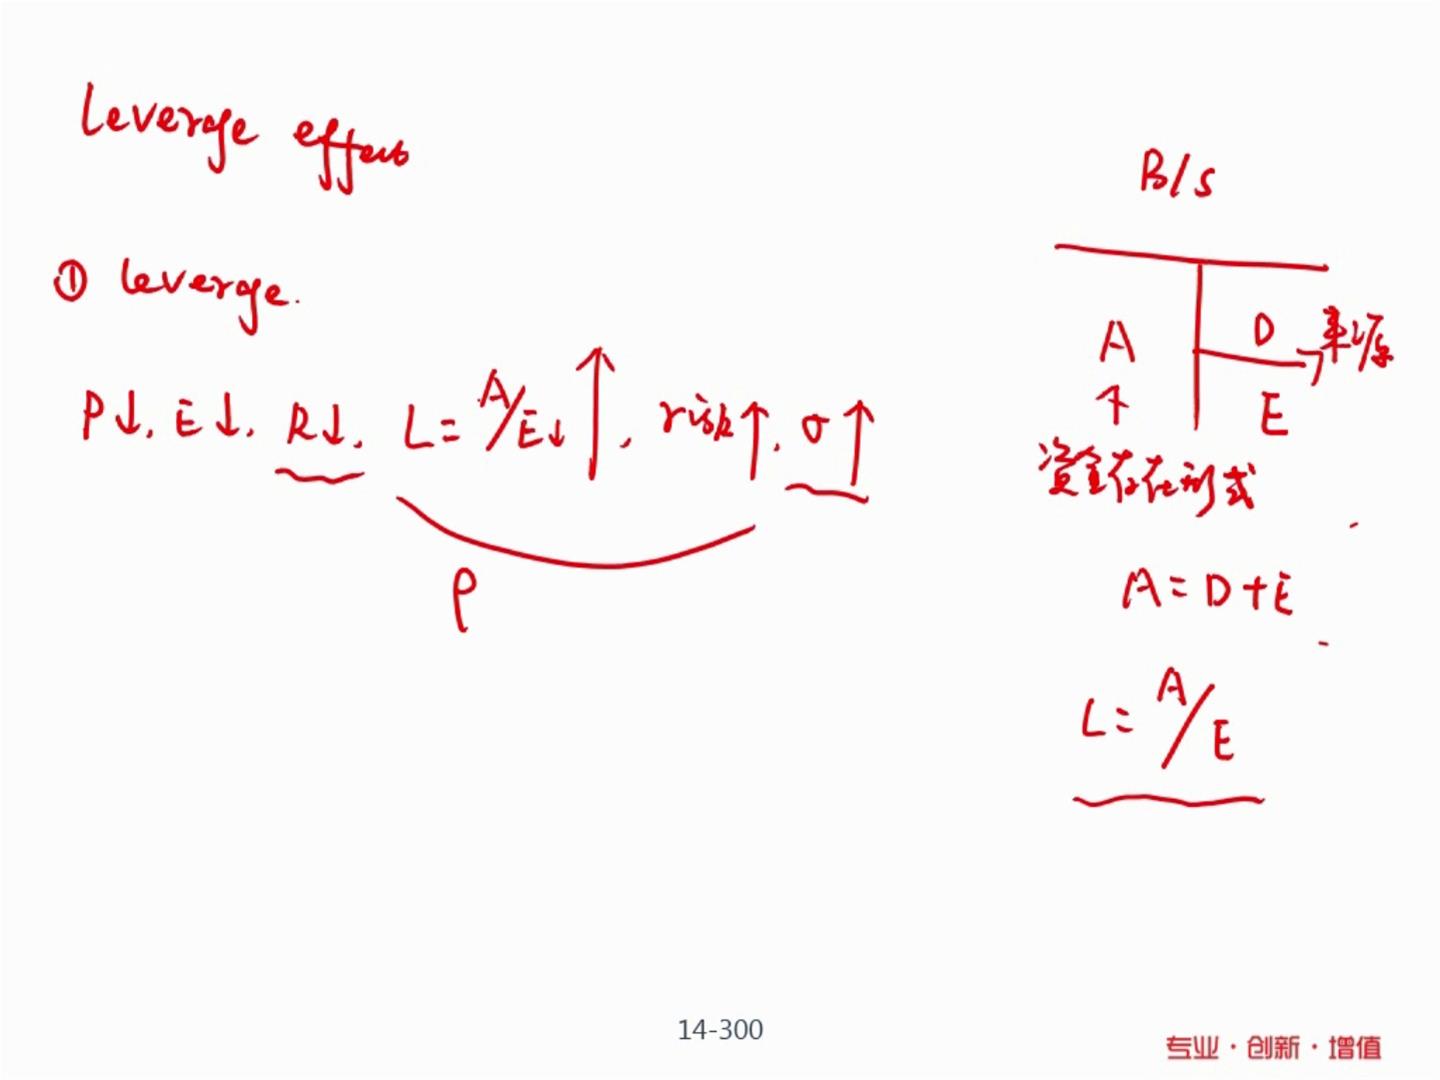 Leverage effect
① Leverage.
P↓. E↓. R↓. L=A/E↓↑, risk↑. σ↑
ρ
B/S
A D 来源
↑ E
资金存在形式
A=D+E
L=A/E
14-300
专业·创新·增值